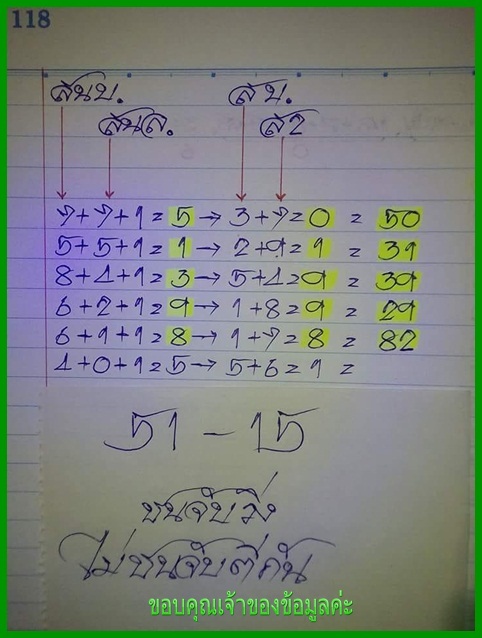 118
สนบ. สบ.
สนล. ส2
7+7+1=5→3+7=0 = 50
5+5+1=1→2+9=1 = 31
8+4+1=3→5+4=9 = 39
6+2+1=9→1+8=9 = 29
6+1+1=8→1+7=8 = 82
4+0+1=5→5+6=1 =
51-15
ชนจับวิ่ง
ไม่ชนจับตีกัน
ขอบคุณเจ้าของข้อมูลค่ะ